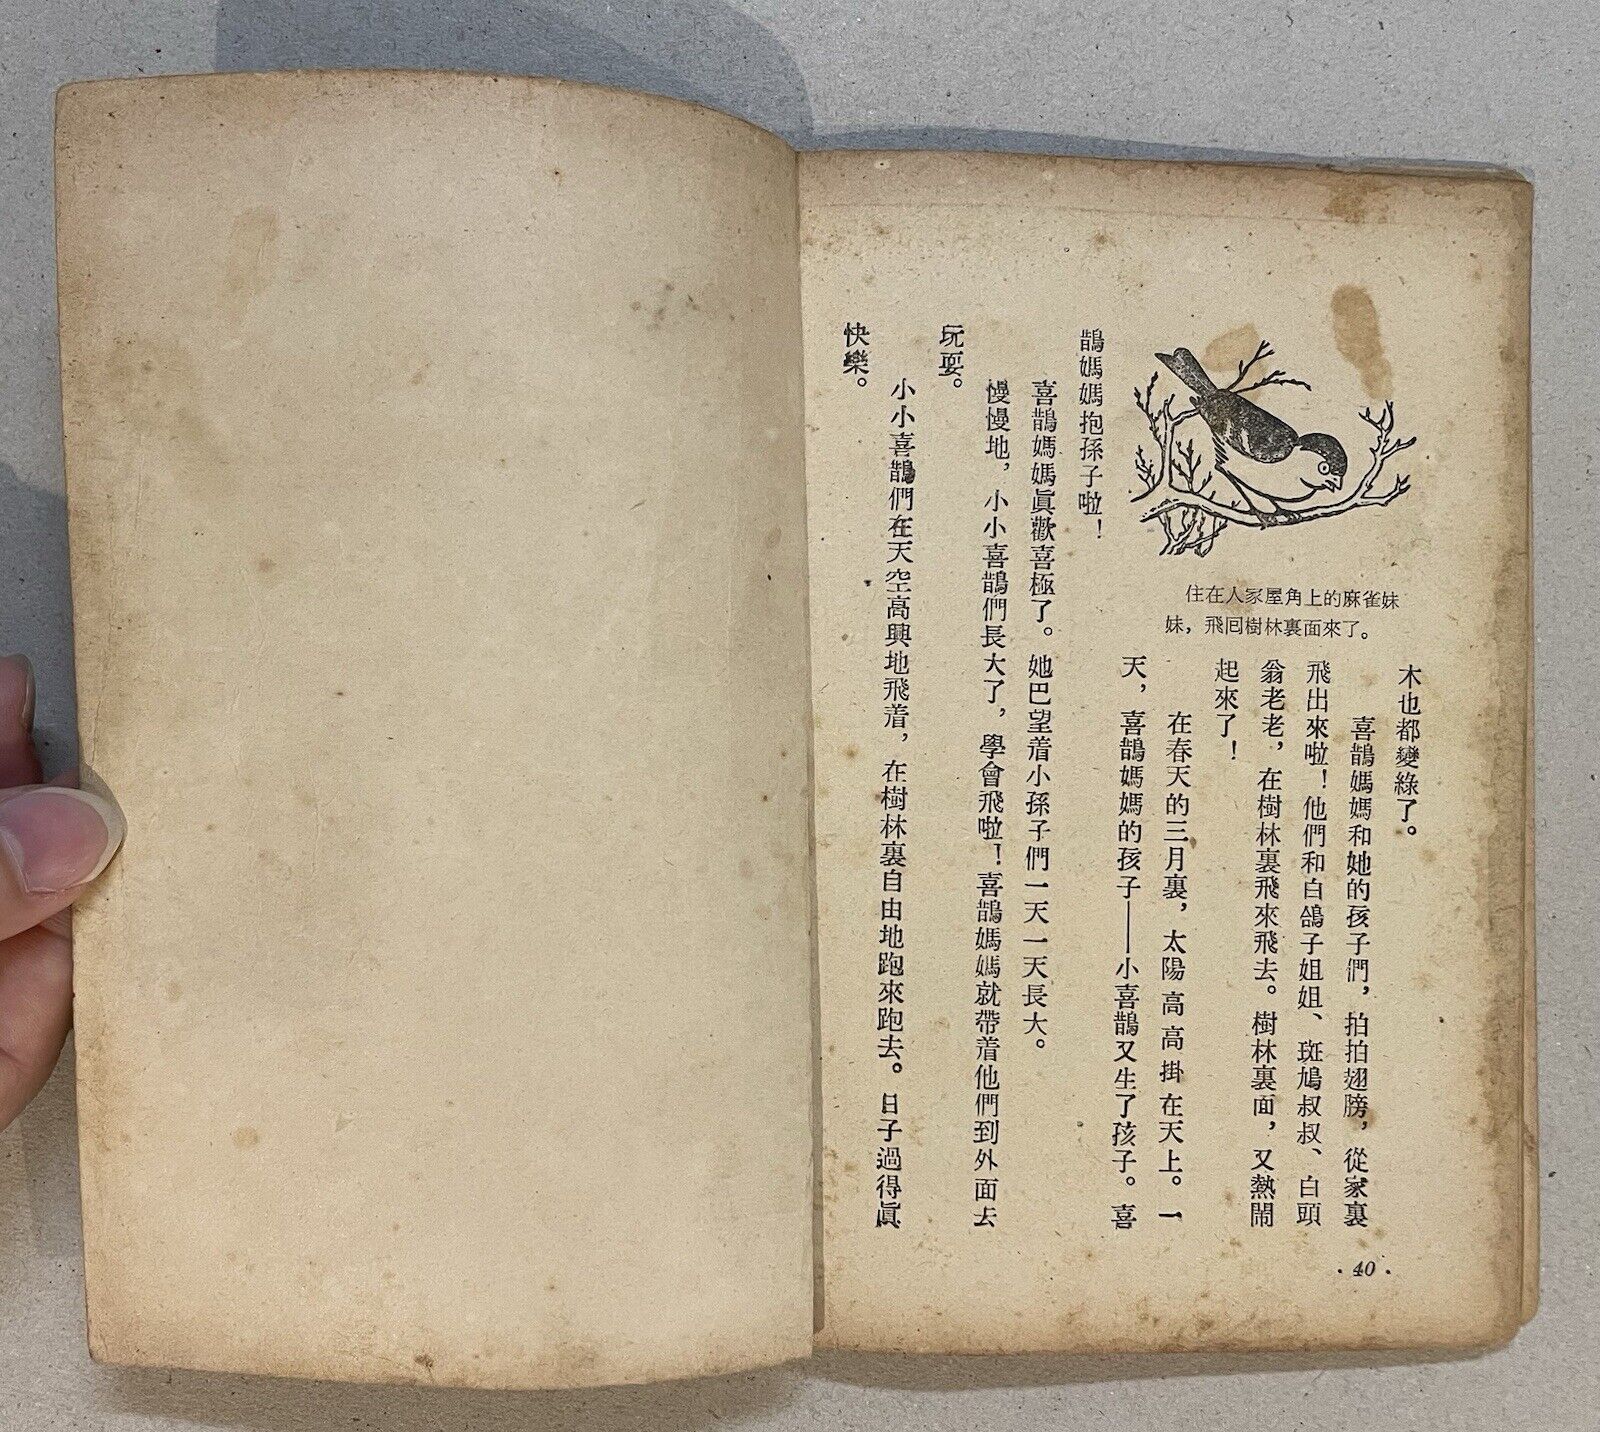 住在人家屋角上的麻雀妹
妹，飛回樹林裏面來了。
木也都變綠了。
喜鵲媽媽和她的孩子們，拍拍翅膀，從家裏
飛出來啦！他們和白鴿子姐姐、斑鳩叔叔、白頭
翁老老，在樹林裏飛來飛去。樹林裏面，又熱鬧
起來了！
在春天的三月裏，太陽高高掛在天上。一
天，喜鵲媽媽的孩子——小喜鵲又生了孩子。喜
鵲媽媽抱孫子啦！
喜鵲媽媽眞歡喜極了。她巴望着小孫子們一天一天長大。
慢慢地，小小喜鵲們長大了，學會飛啦！喜鵲媽媽就帶着他們到外面去
玩耍。
小小喜鵲們在天空高興地飛着，在樹林裏自由地跑來跑去。日子過得眞
快樂。
· 40 ·